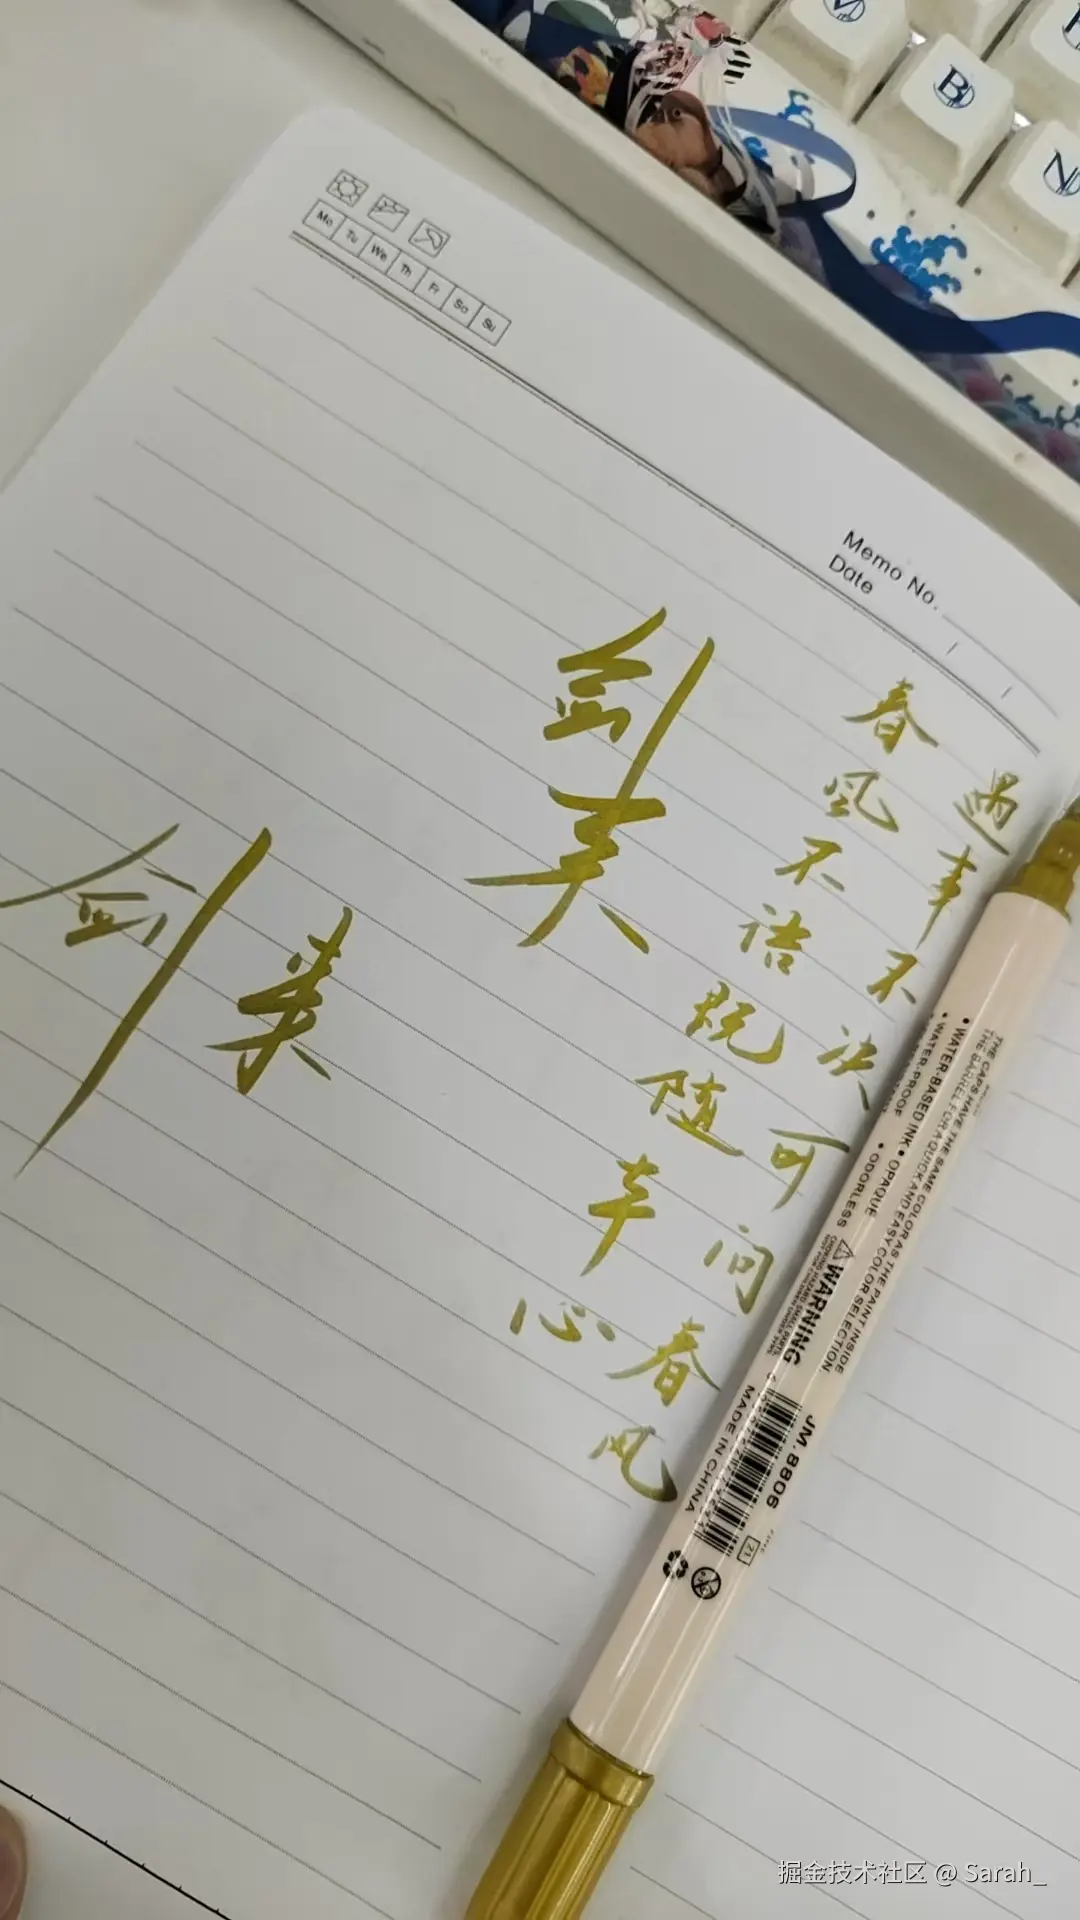 Mo Tu We Th Fr Sa Su
Memo No.
Date
遇事不决可问春风
春风不语既随本心
剑来
剑来
THE CAPS HAVE THE SAME COLOR AS THE PAINT INSIDE
THE BARREL FOR A QUICK AND EASY COLOR SELECTION.
• WATER-BASED INK • OPAQUE
• WATER-PROOF • ODORLESS
WARNING
CHOKING HAZARD SMALL PARTS.
MADE IN CHINA
JM. 8806
21
B
N
掘金技术社区 @ Sarah_